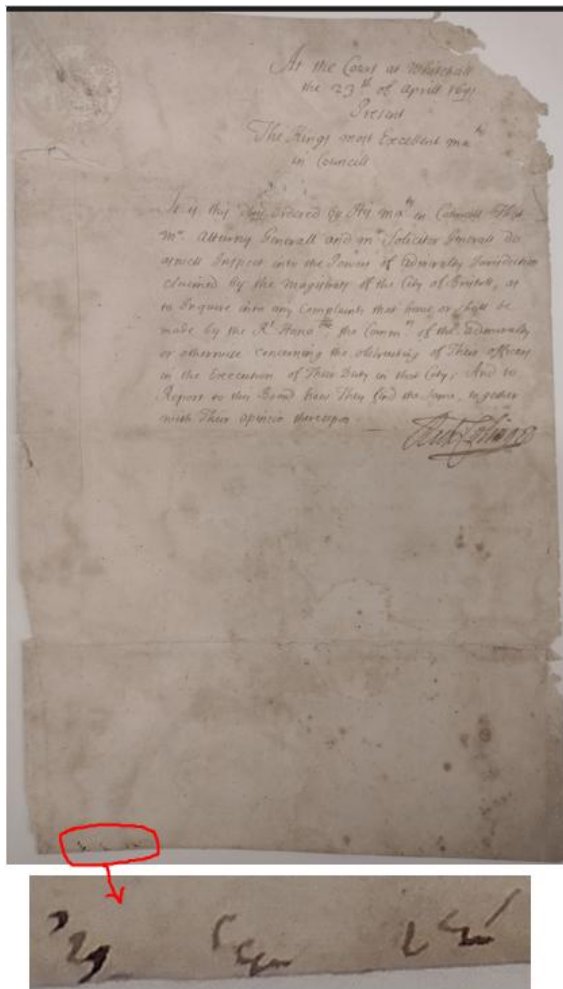 At the Court at Whitehall
the 23th of Aprill 1691
Present
The Kings most Excellent ma^ty
in Councill
It is this day Ordered by His ma^ty in Councill That
m^r Atturny Generall and m^r Solicitor Generall do
Inspect into the Power of Admiralty Jurisdiction
claimed by the magistrates of the City of Bristoll, as
to Inquire into any Complaints that have or shall be
made by the R^t Hono^ble the Comm^rs of the Admiralty
or otherwise concerning the obstructing of Their officers
in the Execution of Their Duty in that City; And to
Report to this Board how They find the same, together
with Their opinion thereupon